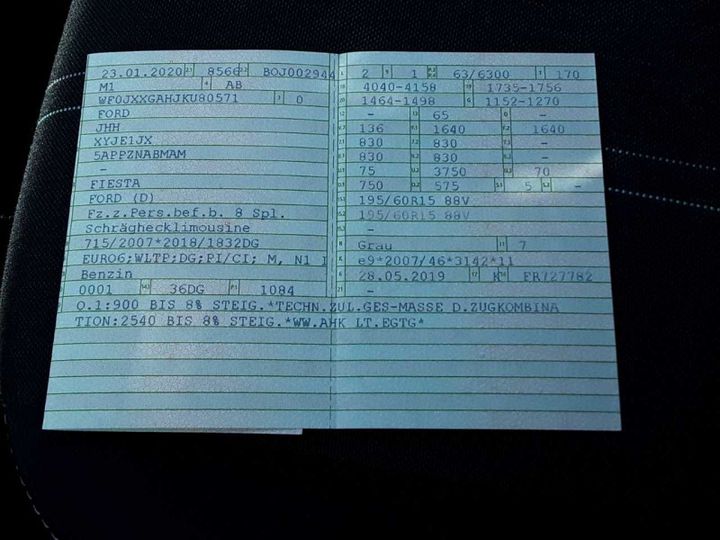 23.01.2020 8566 BOJ002944
M1 AB
WF0JXXGAHJKU80571 0
FORD
JHH
XYJE1JX
5APPZNABMAM
-
FIESTA
FORD (D)
Fz.z.Pers.bef.b. 8 Spl.
Schräghecklimousine
715/2007*2018/1832DG
EURO6;WLTP;DG;PI/CI; M, N1 I
Benzin
0001 36DG 1084
2 1 63/6300 170
4040-4158 1735-1756
1464-1498 1152-1270
- 65 -
136 1640 1640
830 830 -
830 830 -
75 3750 70
750 575 5 -
195/60R15 88V
195/60R15 88V
-
Grau 7
e9*2007/46*3142*11
28.05.2019 K FR727782
-
O.1:900 BIS 8% STEIG.*TECHN.ZUL.GES-MASSE D.ZUGKOMBINA
TION:2540 BIS 8% STEIG.*WW.AHK LT.EGTG*